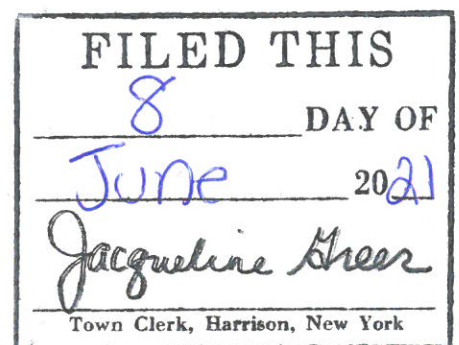 FILED THIS
8 DAY OF
June 2021
Jacqueline Greer
Town Clerk, Harrison, New York